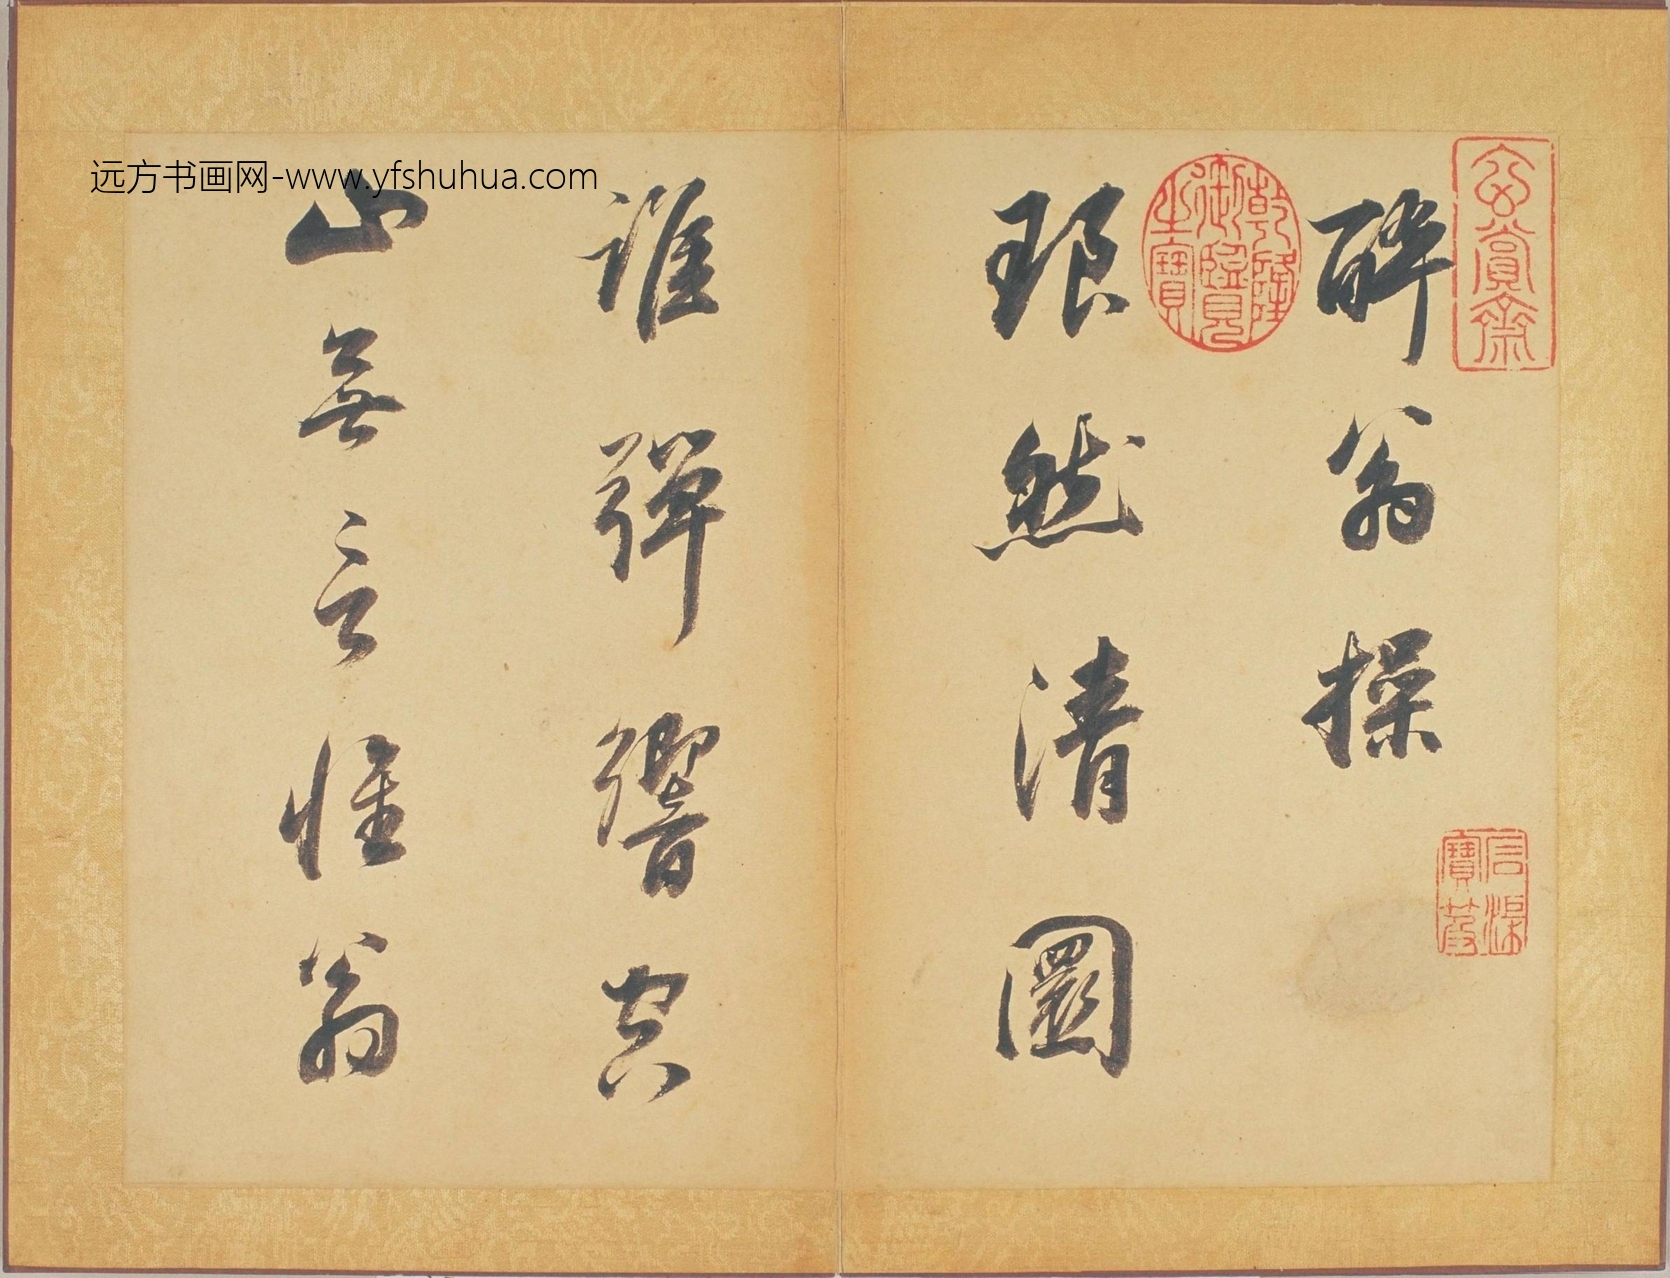 醉翁操
琅然清圜
誰彈響空
山無言惟翁
玄賞齋
乾隆御覽之寶
寶
远方书画网-www.yfshuhua.com